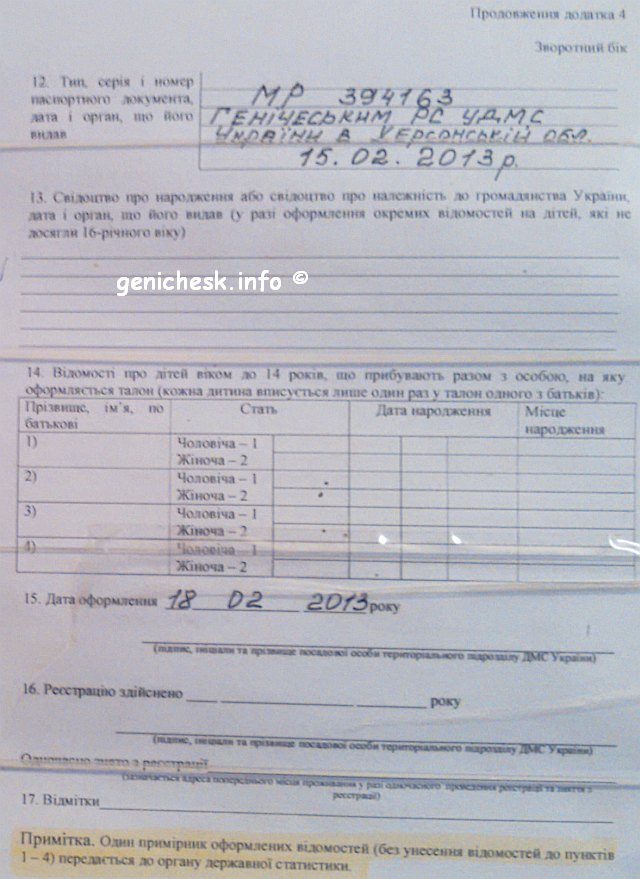 Продовження додатка 4
Зворотний бік
12. Тип, серія і номер
паспортного документа,
дата і орган, що його
видав
МР 394163
ГЕНІЧЕСЬКИМ РС УДМС
України в Херсонській обл.
15.02.2013 р.
13. Свідоцтво про народження або свідоцтво про належність до громадянства України,
дата і орган, що його видав (у разі оформлення окремих відомостей на дітей, які не
досягли 16-річного віку)
genichesk.info ©
14. Відомості про дітей віком до 14 років, що прибувають разом з особою, на яку
оформляється талон (кожна дитина вписується лише один раз у талон одного з батьків):
Прізвище, ім'я, по батькові Стать Дата народження Місце народження
1) Чоловіча – 1
Жіноча – 2
2) Чоловіча – 1
Жіноча – 2
3) Чоловіча – 1
Жіноча – 2
4) Чоловіча – 1
Жіноча – 2
15. Дата оформлення 18 02 2013 року
(підпис, ініціали та прізвище посадової особи територіального підрозділу ДМС України)
16. Реєстрацію здійснено року
(підпис, ініціали та прізвище посадової особи територіального підрозділу ДМС України)
Одночасно знято з реєстрації
(зазначається адреса попереднього місця проживання у разі одночасного проведення реєстрації та зняття з
реєстрації)
17. Відмітки
Примітка. Один примірник оформлених відомостей (без унесення відомостей до пунктів
1 – 4) передається до органу державної статистики.